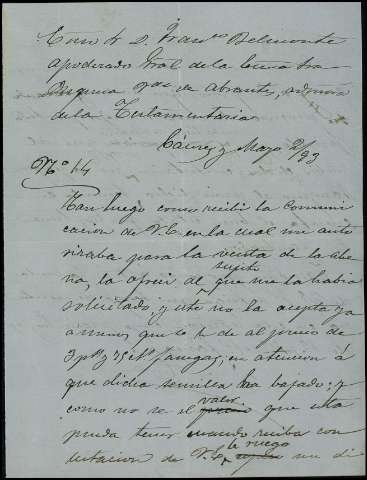 Excmo Sr D. Franco Belmonte
apoderado Gral de la Excma Sra
Duquesa Vda de Abrantes, admora
de la Testamentaria
Cáceres y Mayo 2/93
No 14
Tan luego como recibi la comuni
cacion de V.E. en la cual me auto
rizaba para la venta de la ave
na, la ofreci al sugeto que me la habia
solicitado, y este no la acepta ya
a menos que se le dé al precio de
3 pts y 75 cts fanega, en atencion á
que dicha semilla ha bajado; y
como no se el valor precio que esta
pueda tener cuando reciba con
testacion de V.E. le ruego me di